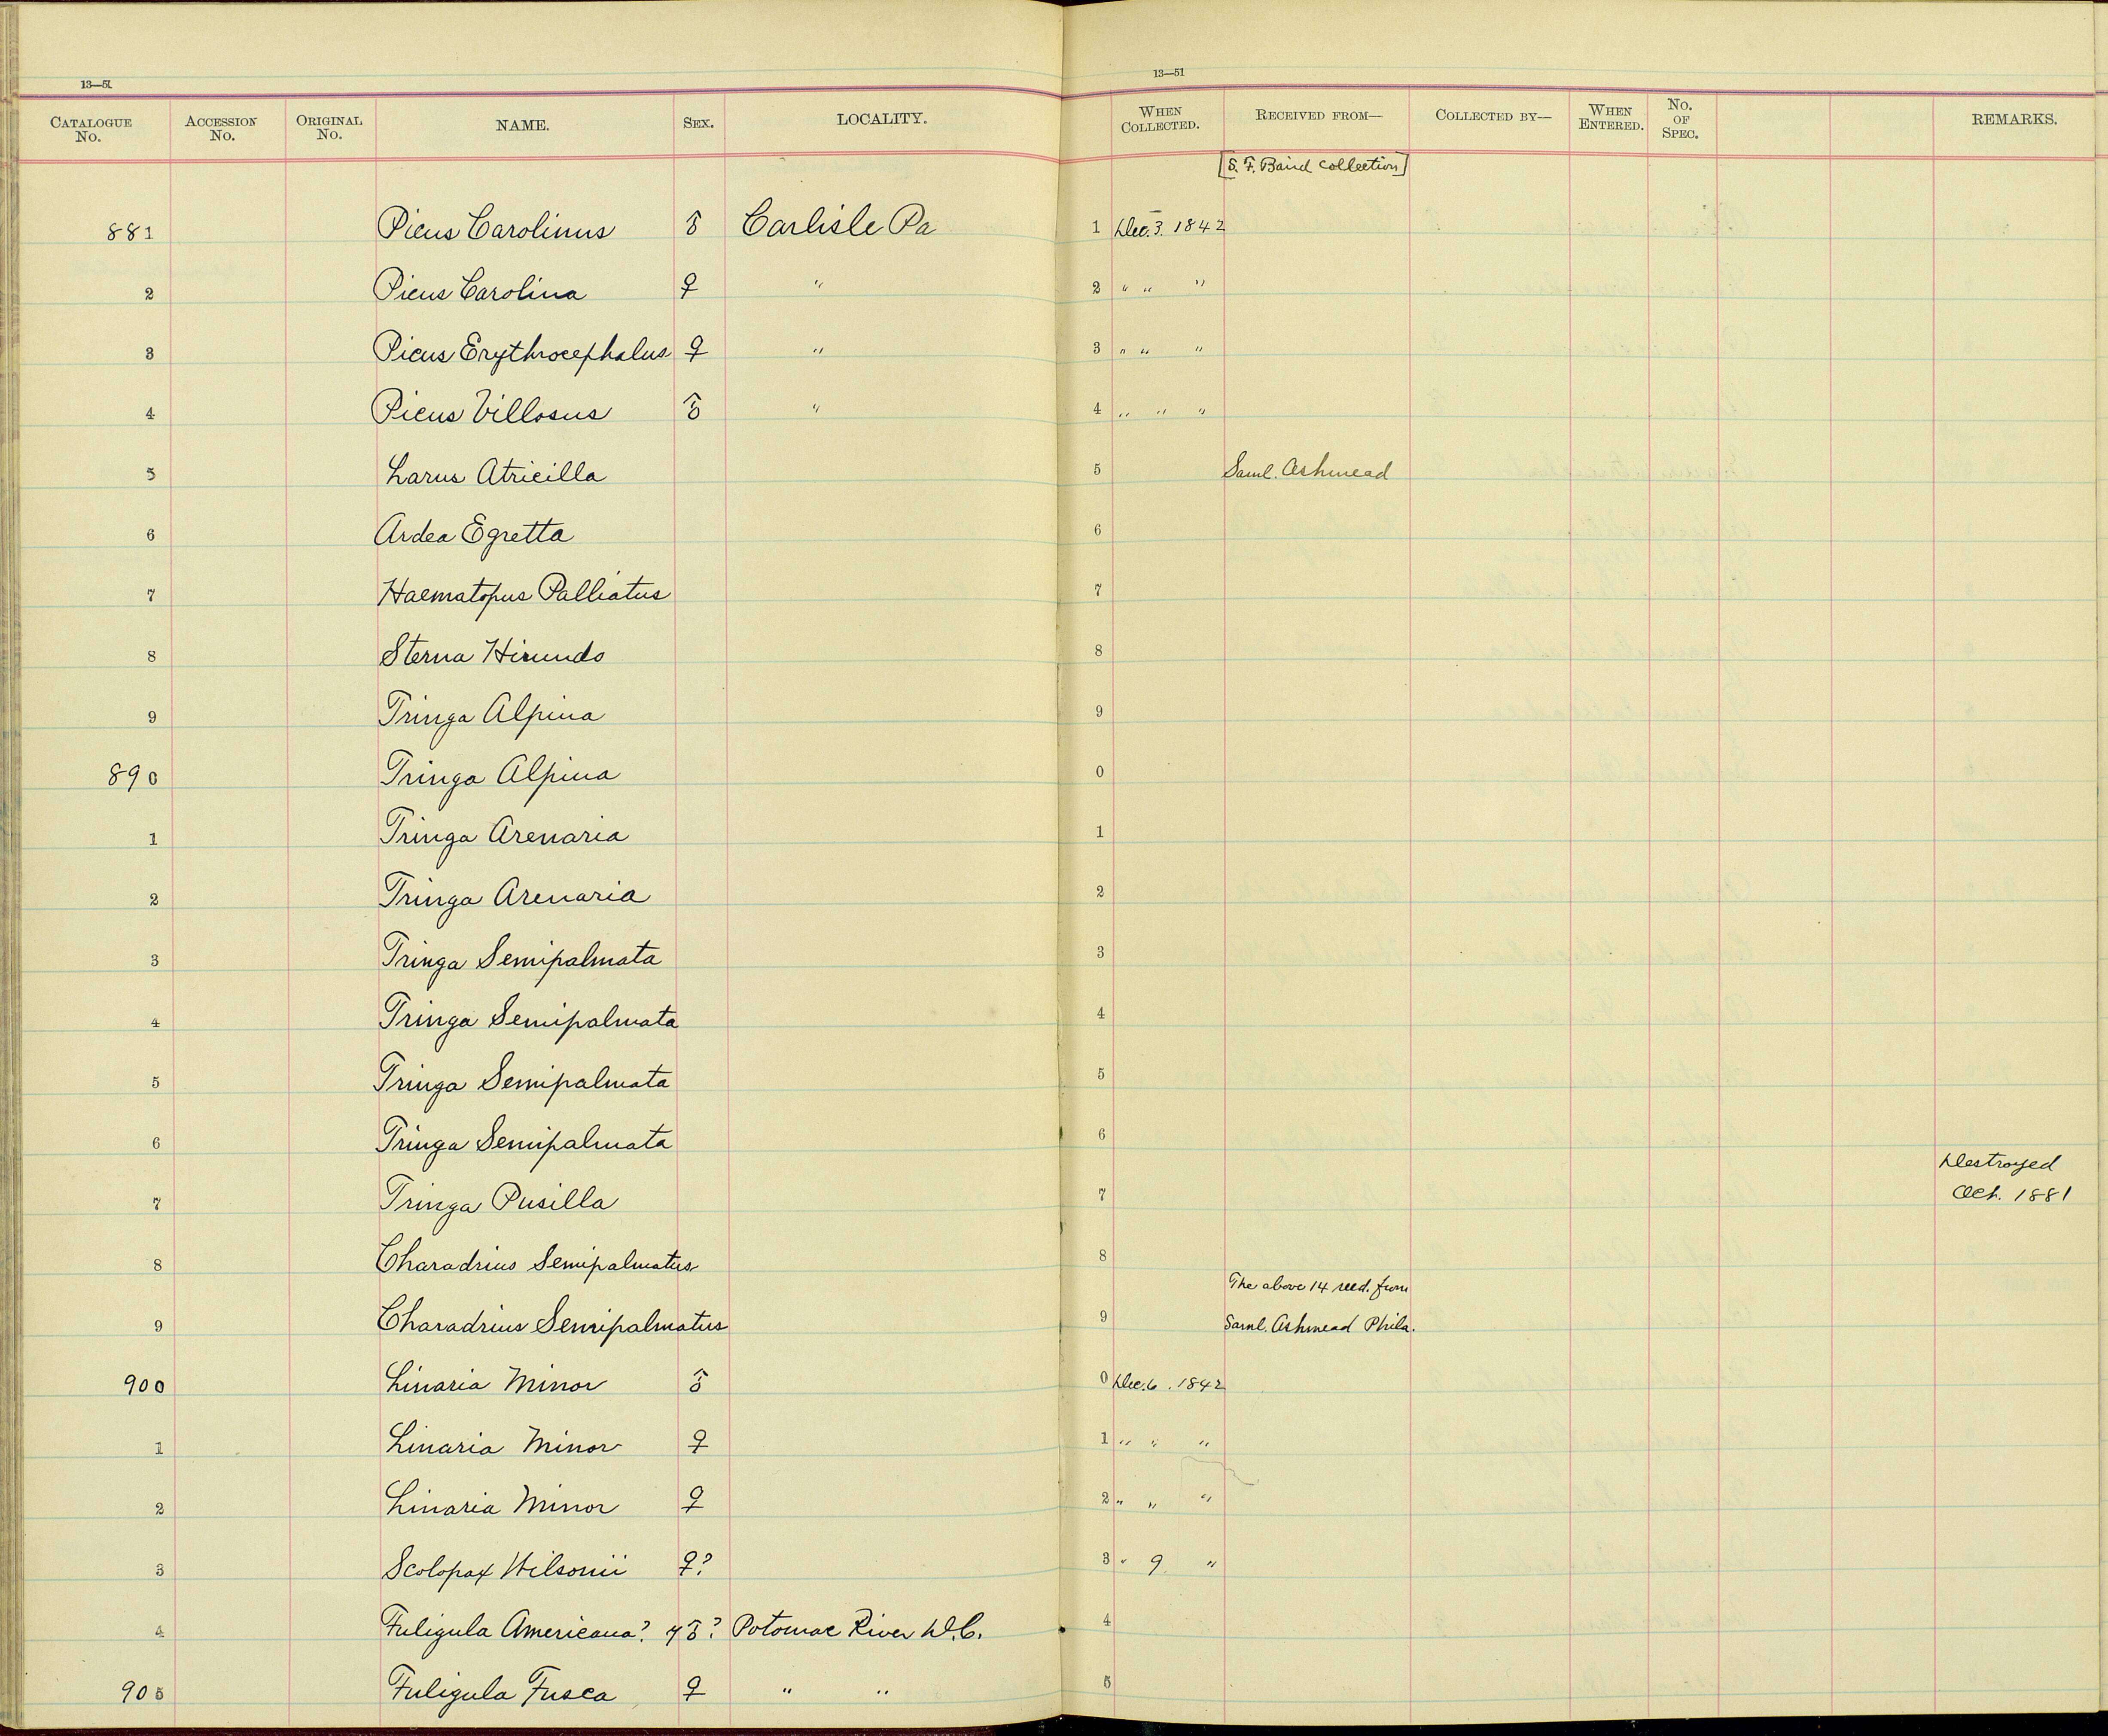 13—51
13—51
CATALOGUE No. ACCESSION No. ORIGINAL No. NAME. SEX. LOCALITY. WHEN COLLECTED. RECEIVED FROM— COLLECTED BY— WHEN ENTERED. No. OF SPEC. REMARKS.
[S. F. Baird collection]
881 Picus Carolinus ♂ Carlisle Pa 1 Dec. 3. 1842
2 Picus Carolina ♀ " 2 " " "
3 Picus Erythrocephalus ♀ " 3 " " "
4 Picus Villosus ♂ " 4 " " "
5 Larus Atricilla 5 Saml. Ashmead
6 Ardea Egretta 6
7 Haematopus Palliatus 7
8 Sterna Hirundo 8
9 Tringa Alpina 9
890 Tringa Alpina 0
1 Tringa Arenaria 1
2 Tringa Arenaria 2
3 Tringa Semipalmata 3
4 Tringa Semipalmata 4
5 Tringa Semipalmata 5
6 Tringa Semipalmata 6
Destroyed
7 Tringa Pusilla 7 Oct. 1881
8 Charadrius Semipalmatus 8
The above 14 recd. from
9 Charadrius Semipalmatus 9 Saml. Ashmead Phila.
900 Linaria Minor ♂ 0 Dec. 6. 1842
1 Linaria Minor ♀ 1 " " "
2 Linaria Minor ♀ 2 " " "
3 Scolopax Wilsonii ♀? 3 " 9 "
4 Fuligula Americana? y ♂? Potomac River D.C. 4
905 Fuligula Fusca ♀ " " 5